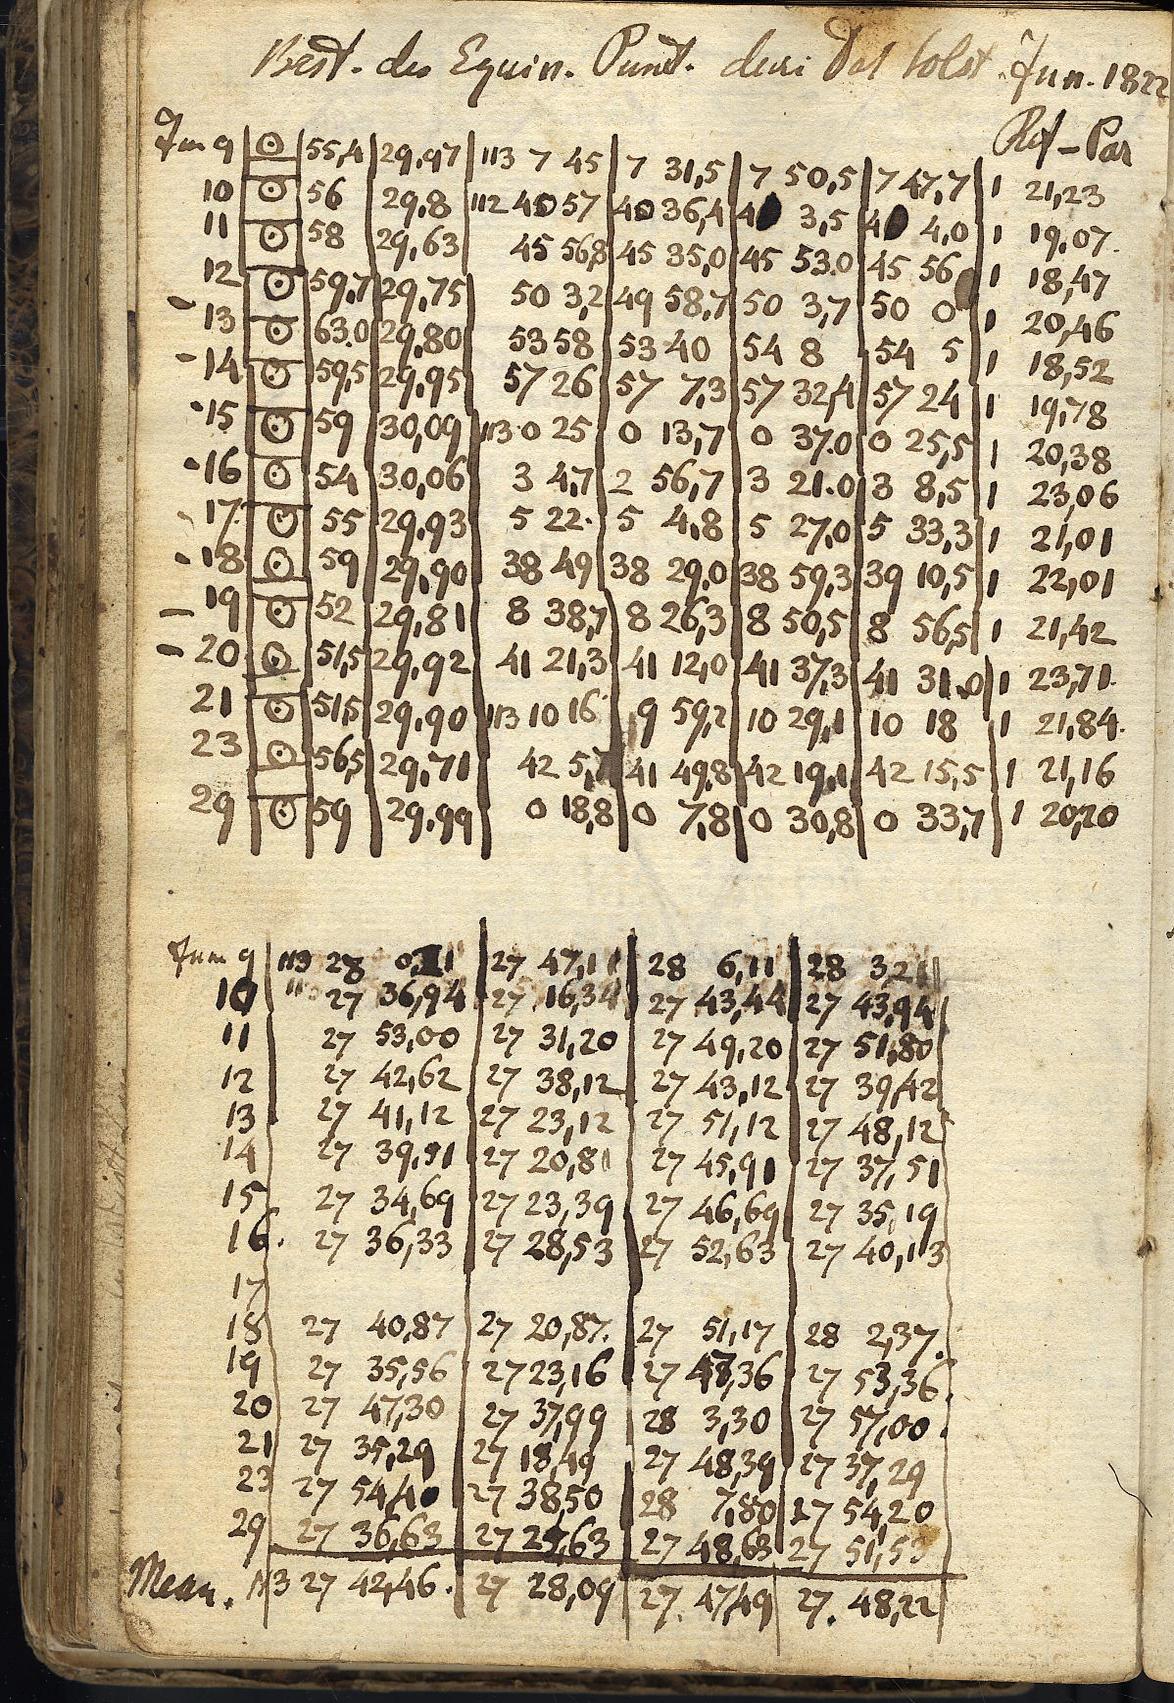 Best. des Equin. Punct. duri Dat Solst. Jun. 1822
Ref-Par
Jun 9 ⊙ 55,4 29,97 113 7 45 7 31,5 7 50,5 7 47,7 1 21,23
10 ⊙ 56 29,8 112 40 57 40 36,4 41 3,5 41 4,0 1 19,07.
11 ⊙ 58 29,63 45 56,8 45 35,0 45 53.0 45 56 1 18,47
12 ⊙ 59,7 29,75 50 3,2 49 58,7 50 3,7 50 0 1 20,46
- 13 ⊙ 63.0 29,80 53 58 53 40 54 8 54 5 1 18,52
- 14 ⊙ 59,5 29,95 57 26 57 7,3 57 32,4 57 24 1 19,78
- 15 ⊙ 59 30,09 113 0 25 0 13,7 0 37.0 0 25,5 1 20,38
- 16 ⊙ 54 30,06 3 4,7 2 56,7 3 21.0 3 8,5 1 23,06
- 17. ⊙ 55 29,93 5 22. 5 4,8 5 27,0 5 33,3 1 21,01
- 18 ⊙ 59 29,90 38 49 38 29,0 38 59,3 39 10,5 1 22,01
- 19 ⊙ 52 29,81 8 38,7 8 26,3 8 50,5 8 56,5 1 21,42
- 20 ⊙ 51,5 29,92 41 21,3 41 12,0 41 37,3 41 31.0 1 23,71.
21 ⊙ 51,5 29,90 113 10 16 9 59,2 10 29,1 10 18 1 21,84.
23 ⊙ 56,5 29,71 42 5,7 41 49,8 42 19,1 42 15,5 1 21,16
29 ⊙ 59 29,99 0 18,8 0 7,8 0 30,8 0 33,7 1 20,20
Jun 9 113 28 0,11 27 47,11 28 6,11 28 3,21
10 113 27 36,94 27 16,34 27 43,44 27 43,94
11 27 53,00 27 31,20 27 49,20 27 51,80
12 27 42,62 27 38,12 27 43,12 27 39,42
13 27 41,12 27 23,12 27 51,12 27 48,12
14 27 39,91 27 20,81 27 45,91 27 37,51
15 27 34,69 27 23,39 27 46,69 27 35,19
16. 27 36,33 27 28,53 27 52,63 27 40,13
17
18 27 40,87 27 20,87. 27 51,17 28 2,37.
19 27 35,56 27 23,16 27 47,36 27 53,36.
20 27 47,30 27 37,99 28 3,30 27 57,00.
21 27 35,29 27 18,49 27 48,39 27 37,29
23 27 54,40 27 38,50 28 7,80 27 54,20
29 27 36,63 27 25,63 27 48,63 27 51,53
Mean. 113 27 42,46. 27 28,09 27. 47,49 27. 48,22